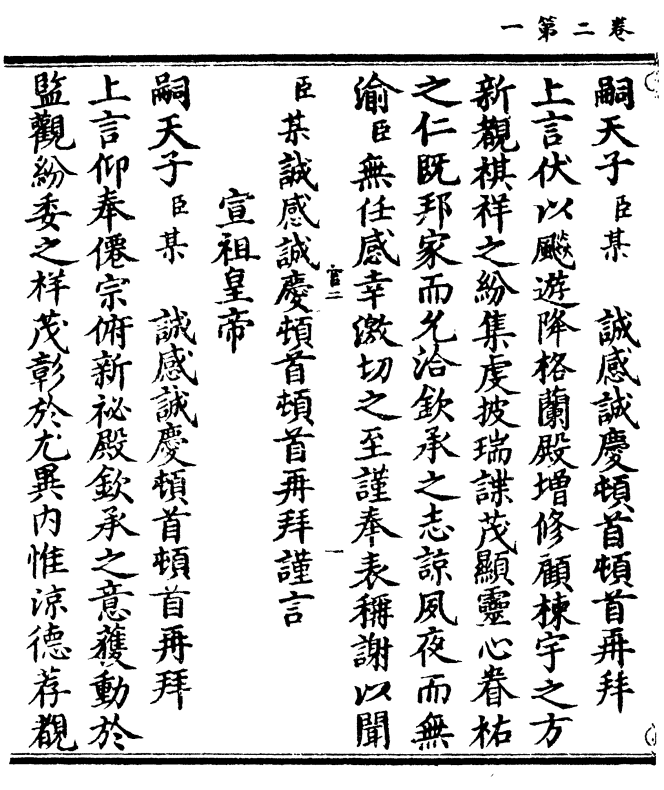 卷二第一
嗣天子臣某　誠感誠慶頓首頓首再拜
上言伏以飈遊降格蘭殿增修顧棟宇之方
新覩祺祥之紛集虔披瑞諜茂顯靈心眷祐
之仁既邦家而允洽欽承之志諒夙夜而無
渝臣無任感幸激切之至謹奉表稱謝以聞
臣某誠感誠慶頓首頓首再拜謹言
宣祖皇帝
嗣天子臣某　誠感誠慶頓首頓首再拜
上言仰奉僊宗俯新祕殿欽承之意蒦動於
監觀紛委之祥茂彰於尤異內惟涼德荐覩